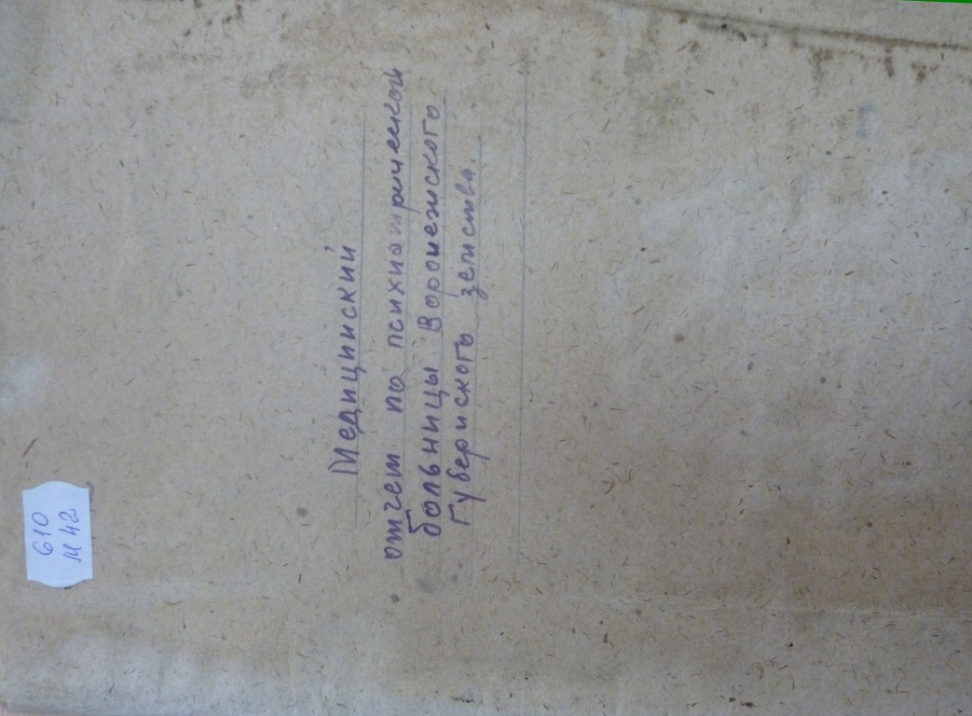 610
М 42
Медицинский
отчет по психиатрической
больницы Воронежского
губернского земства.